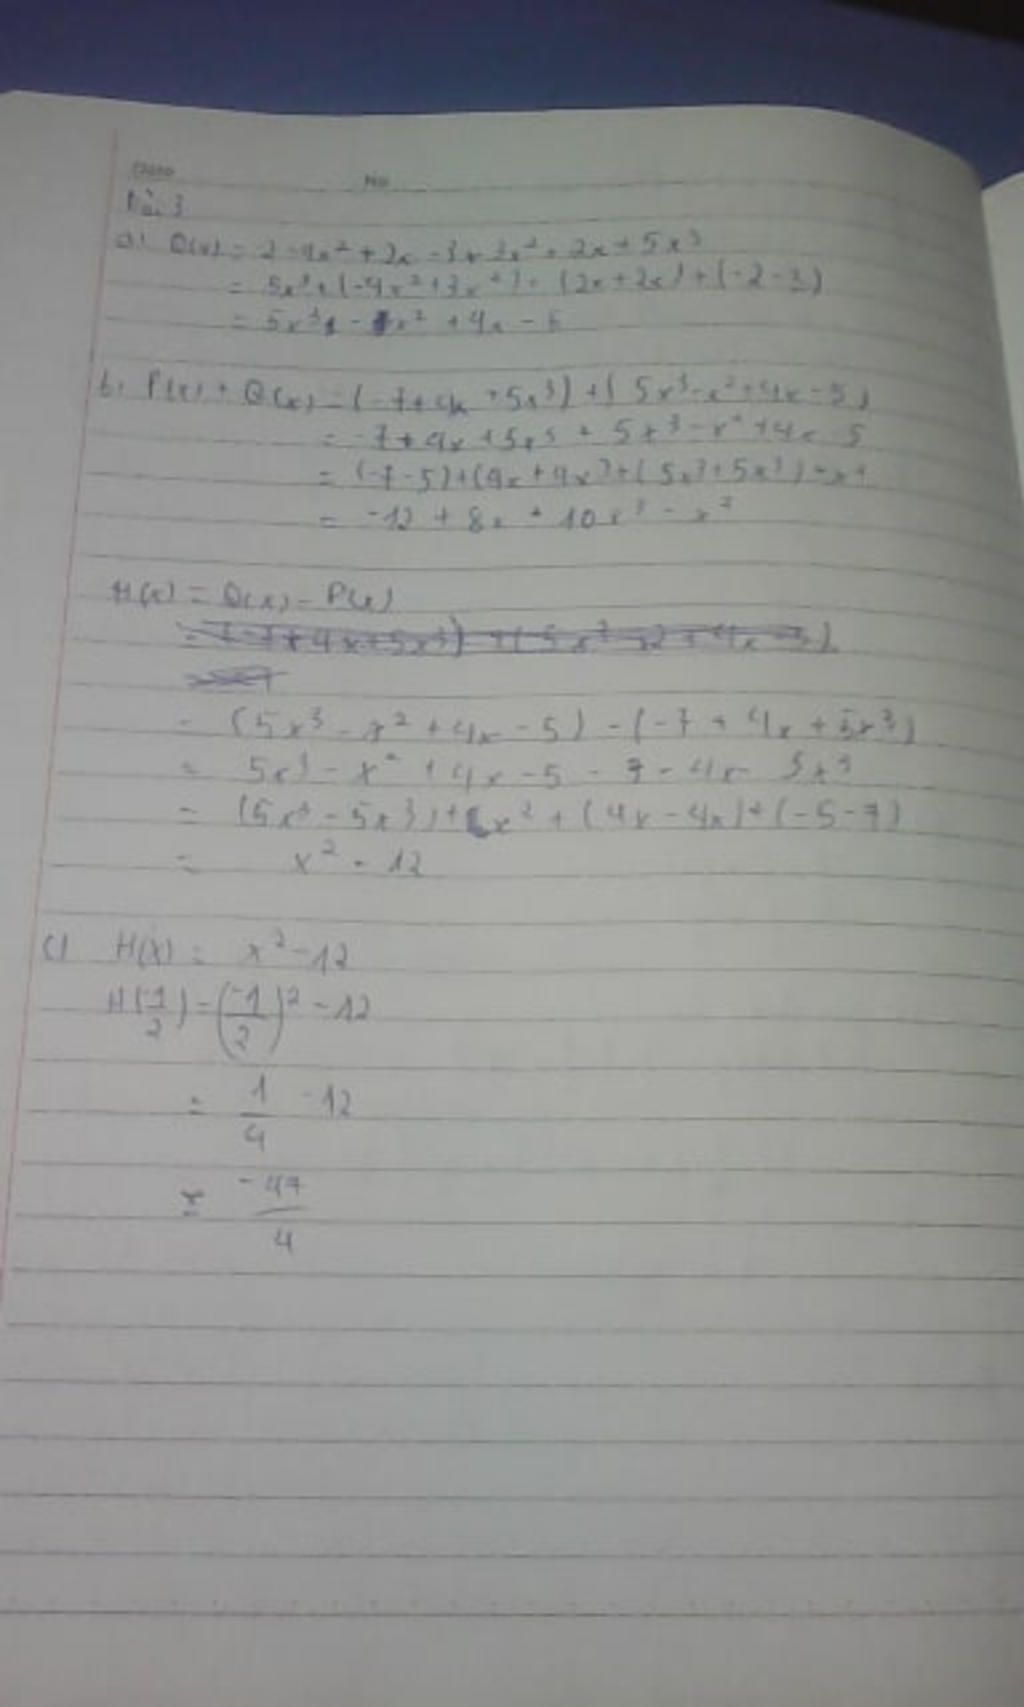 Date No
Bài 3
a) Q(x) = 2 - 4x² + 2x - 3 + 3x² + 2x + 5x³
= 5x³ + (-4x² + 3x²) + (2x + 2x) + (-2 - 3)
= 5x³ - x² + 4x - 5
b. P(x) + Q(x) = (-7 + 4x + 5x³) + (5x³ - x² + 4x - 5)
= -7 + 4x + 5x³ + 5x³ - x² + 4x - 5
= (-7 - 5) + (4x + 4x) + (5x³ + 5x³) - x²
= -12 + 8x + 10x³ - x²
H(x) = Q(x) - P(x)
= (5x³ - x² + 4x - 5) - (-7 + 4x + 5x³)
= 5x³ - x² + 4x - 5 - 7 - 4x - 5x³
= (5x³ - 5x³) + x² + (4x - 4x) + (-5 - 7)
= x² - 12
c) H(x) = x² - 12
H(-1/2) = (-1/2)² - 12
= 1/4 - 12
= -47/4